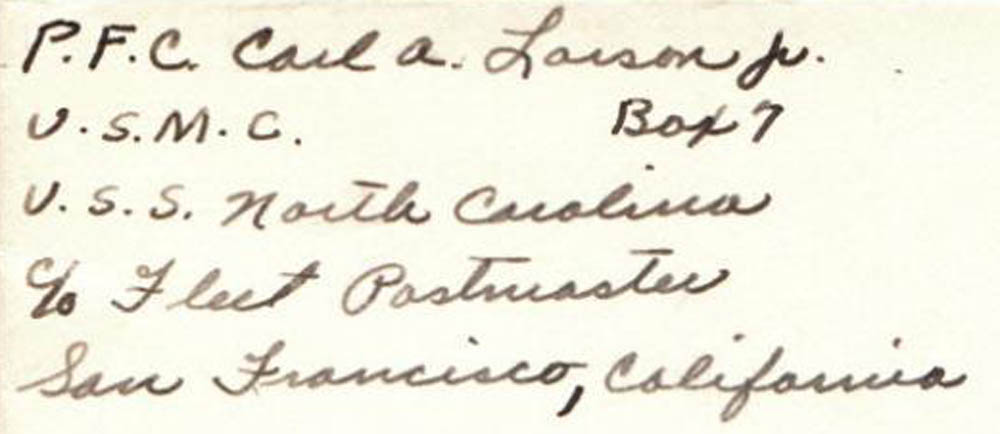 P.F.C. Carl A. Larson Jr.
U.S.M.C. Box 7
U.S.S. North Carolina
c/o Fleet Postmaster
San Francisco, California